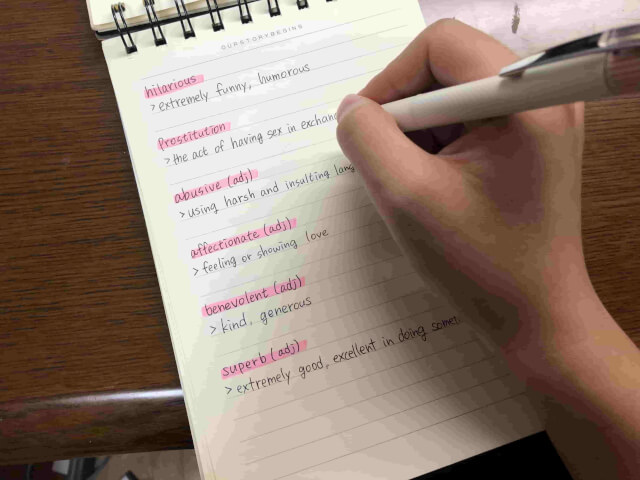 OURSTORYBEGINS
hilarious
> extremely funny, humorous
Prostitution
> the act of having sex in
abusive (adj)
> using harsh and insulting
affectionate (adj)
> feeling or showing love
benevolent (adj)
> kind, generous
superb (adj)
> extremely good, excellent in doing